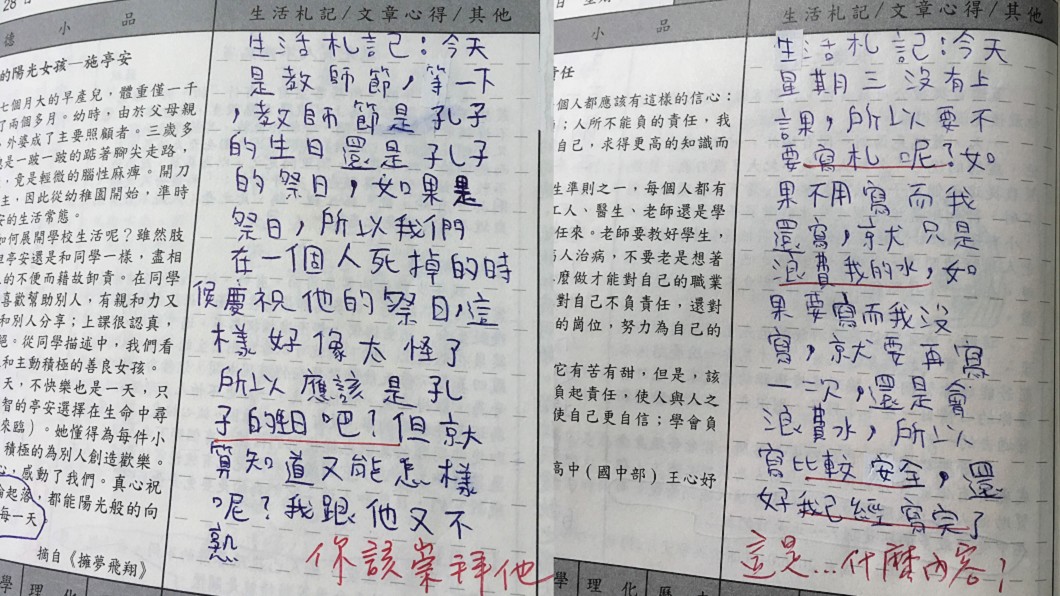 28日
德 小 品
生活札記/文章心得/其他
的陽光女孩─施亭安
七個月大的早產兒，體重僅一千
了兩個多月。幼時，由於父母親
、外婆成了主要照顧者。三歲多
總是一跛一跛的踮著腳尖走路，
，竟是輕微的腦性麻痺。開刀
主，因此從幼稚園開始，準時
安的生活常態。
如何展開學校生活呢？雖然肢
但亭安還是和同學一樣，盡相
的不便而藉故卸責。在同學
喜歡幫助別人，有親和力又
和別人分享；上課很認真，
。從同學描述中，我們看
和主動積極的善良女孩。
天，不快樂也是一天，只
智的亭安選擇在生命中尋
來臨）。她懂得為每件小
積極的為別人創造歡樂。
心，感動了我們。真心祝
起落，都能陽光般的向
每一天
摘自《擁夢飛翔》
學 理
生活札記：今天
是教師節，等一下
，教師節是孔子
的生日還是孔子
的祭日，如果是
祭日，所以我們
在一個人死掉的時
候慶祝他的祭日，這
樣好像太怪了
所以應該是孔
子的生日吧？但就
算知道又能怎樣
呢？我跟他又不
熟
你該崇拜他
小 品
生活札記/文章心得/其他
責任
個人都應該有這樣的信心：
；人所不能負的責任，我
自己，求得更高的知識而
生準則之一，每個人都有
工人、醫生、老師還是學
任來。老師要教好學生，
病人治病，不要老是想著
麼做才能對自己的職業
對自己不負責任，還對
的崗位，努力為自己的
它有苦有甜，但是，該
負起責任，使人與人之
使自己更自信；學會負
高中（國中部）王心好
學 理 化 歷
生活札記：今天
星期三沒有上
課，所以要不
要寫札呢？如
果不用寫而我
還寫，就只是
浪費我的水，如
果要寫而我沒
寫，就要再寫
一次，還是會
浪費水，所以
寫比較安全，還
好我已經寫完了
這是…什麼內容！